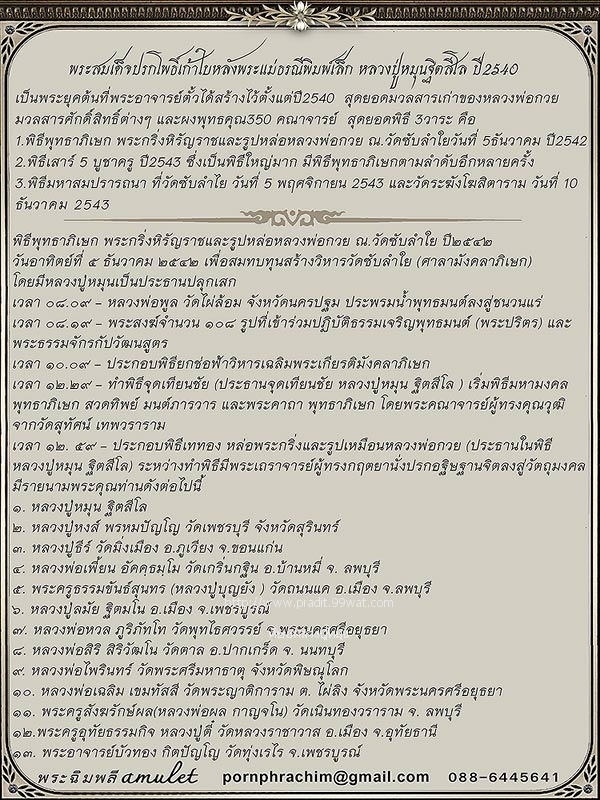 พระสมเด็จปรกโพธิ์เก้าใบหลังพระแม่ธรณีพิมพ์เล็ก หลวงปู่หมุนฐิตสีโล ปี2540
เป็นพระยุคต้นที่พระอาจารย์ตั้วได้สร้างไว้ตั้งแต่ปี2540 สุดยอดมวลสารเก่าของหลวงพ่อกวย
มวลสารศักดิ์สิทธิ์ต่างๆ และผงพุทธคุณ350 คณาจารย์ สุดยอดพิธี 3วาระ คือ
1.พิธีพุทธาภิเษก พระกริ่งหิรัญราชและรูปหล่อหลวงพ่อกวย ณ.วัดซับลำใยวันที่ 5ธันวาคม ปี2542
2.พิธีเสาร์ 5 บูชาครู ปี2543 ซึ่งเป็นพิธีใหญ่มาก มีพิธีพุทธาภิเษกตามลำดับอีกหลายครั้ง
3.พิธีมหาสมปรารถนา ที่วัดซับลำใย วันที่ 5 พฤศจิกายน 2543 และวัดระฆังโฆสิตาราม วันที่ 10
ธันวาคม 2543
พิธีพุทธาภิเษก พระกริ่งหิรัญราชและรูปหล่อหลวงพ่อกวย ณ.วัดซับลำใย ปี๒๕๔๒
วันอาทิตย์ที่ ๕ ธันวาคม ๒๕๔๒ เพื่อสมทบทุนสร้างวิหารวัดซับลำใย (ศาลามังคลาภิเษก)
โดยมีหลวงปู่หมุนเป็นประธานปลุกเสก
เวลา ๐๘.๐๙ – หลวงพ่อพูล วัดไผ่ล้อม จังหวัดนครปฐม ประพรมน้ำพุทธมนต์ลงสู่ชนวนแร่
เวลา ๐๘.๑๙ – พระสงฆ์จำนวน ๑๐๘ รูปที่เข้าร่วมปฏิบัติธรรมเจริญพุทธมนต์ (พระปริตร) และ
พระธรรมจักรกัปวัฒนสูตร
เวลา ๑๐.๐๙ – ประกอบพิธียกช่อฟ้าวิหารเฉลิมพระเกียรติมังคลาภิเษก
เวลา ๑๒.๒๙ – ทำพิธีจุดเทียนชัย (ประธานจุดเทียนชัย หลวงปู่หมุน ฐิตสีโล ) เริ่มพิธีมหามงคล
พุทธาภิเษก สวดทิพย์ มนต์ภารวาร และพระคาถา พุทธาภิเษก โดยพระคณาจารย์ผู้ทรงคุณวุฒิ
จากวัดสุทัศน์ เทพวราราม
เวลา ๑๒. ๕๙ – ประกอบพิธีเททอง หล่อพระกริ่งและรูปเหมือนหลวงพ่อกวย (ประธานในพิธี
หลวงปู่หมุน ฐิตสีโล) ระหว่างทำพิธีมีพระเถราจารย์ผู้ทรงกฤตยานั่งปรกอฐิษฐานจิตลงสู่วัตถุมงคล
มีรายนามพระคุณท่านดังต่อไปนี้
๑. หลวงปู่หมุน ฐิตสีโล
๒. หลวงปู่หงส์ พรหมปัญโญ วัดเพชรบุรี จังหวัดสุรินทร์
๓. หลวงปู่ธีร์ วัดมิ่งเมือง อ.ภูเวียง จ.ขอนแก่น
๔. หลวงพ่อเพี้ยน อัคคธมฺโม วัดเกริ่นกฐิน อ.บ้านหมี่ จ. ลพบุรี
๕. พระครูธรรมขันธ์สุนทร (หลวงปู่บุญยัง ) วัดถนนแค อ.เมือง จ.ลพบุรี
http://www.pradit.99wat.com
๖. หลวงปู่ลมัย ฐิตมโน อ.เมือง จ.เพชรบูรณ์
๗. หลวงพ่อหวล ภูริภัทโท วัดพุทไธศวรรย์ จ.พระนครศรีอยุธยา
๘. หลวงพ่อสิริ สิริวัฒโน วัดตาล อ.ปากเกร็ด จ. นนทบุรี
๙. หลวงพ่อไพรินทร์ วัดพระศรีมหาธาตุ จังหวัดพิษณุโลก
๑๐. หลวงพ่อเฉลิม เขมทัสสี วัดพระญาติการาม ต. ไผ่ลิง จังหวัดพระนครศรีอยุธยา
๑๑. พระครูสังฆรักษ์ผล(หลวงพ่อผล กาญจโน) วัดเนินทองวราราม จ. ลพบุรี
๑๒.พระครูอุทัยธรรมกิจ หลวงปู่ตี๋ วัดหลวงราชาวาส อ.เมือง จ.อุทัยธานี
๑๓. พระอาจารย์บัวทอง กิตปัญโญ วัดทุ่งเรไร จ.เพชรบูรณ์
พระฉิมพลี amulet pornphrachim@gmail.com 088-6445641